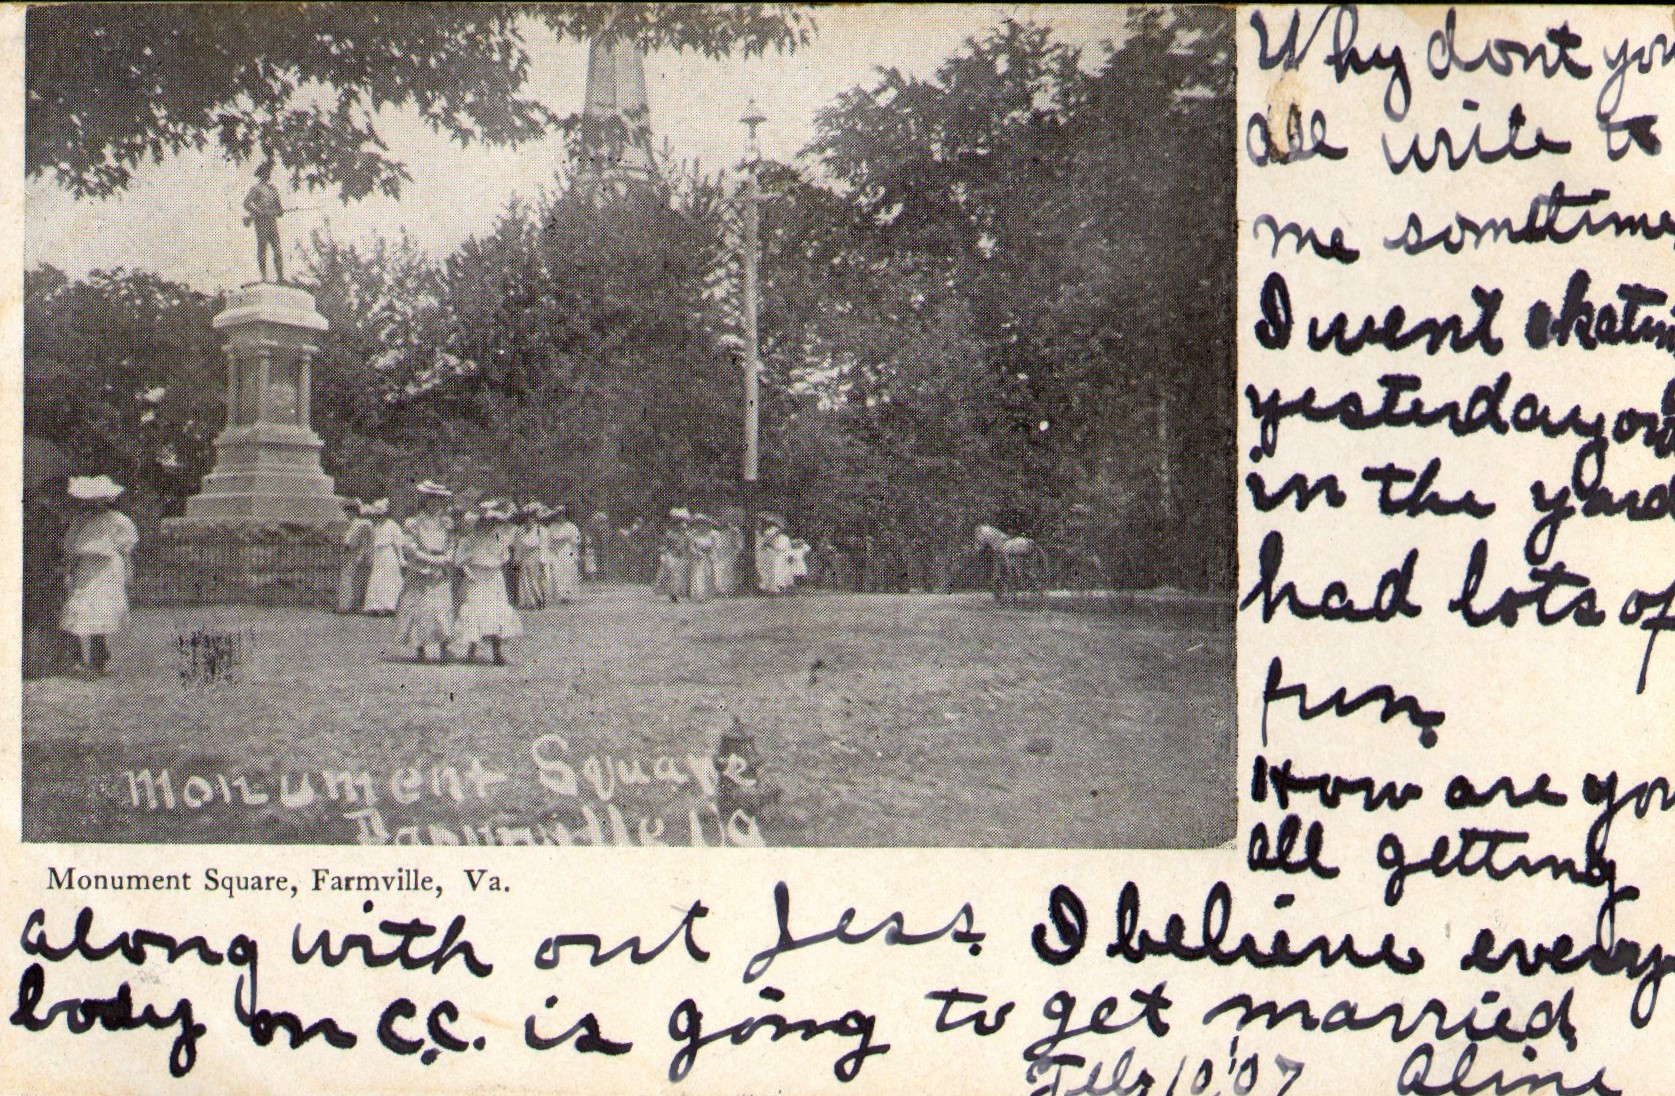 Why dont you
all write to
me sometime
I went skatin
yesterday out
in the yard
had lots of
fun.
How are you
all getting
Monument Square
Farmville Va
Monument Square, Farmville, Va.
along with out Jess. I believe every
body on C.C. is going to get married
Feb 10, '07 Aline